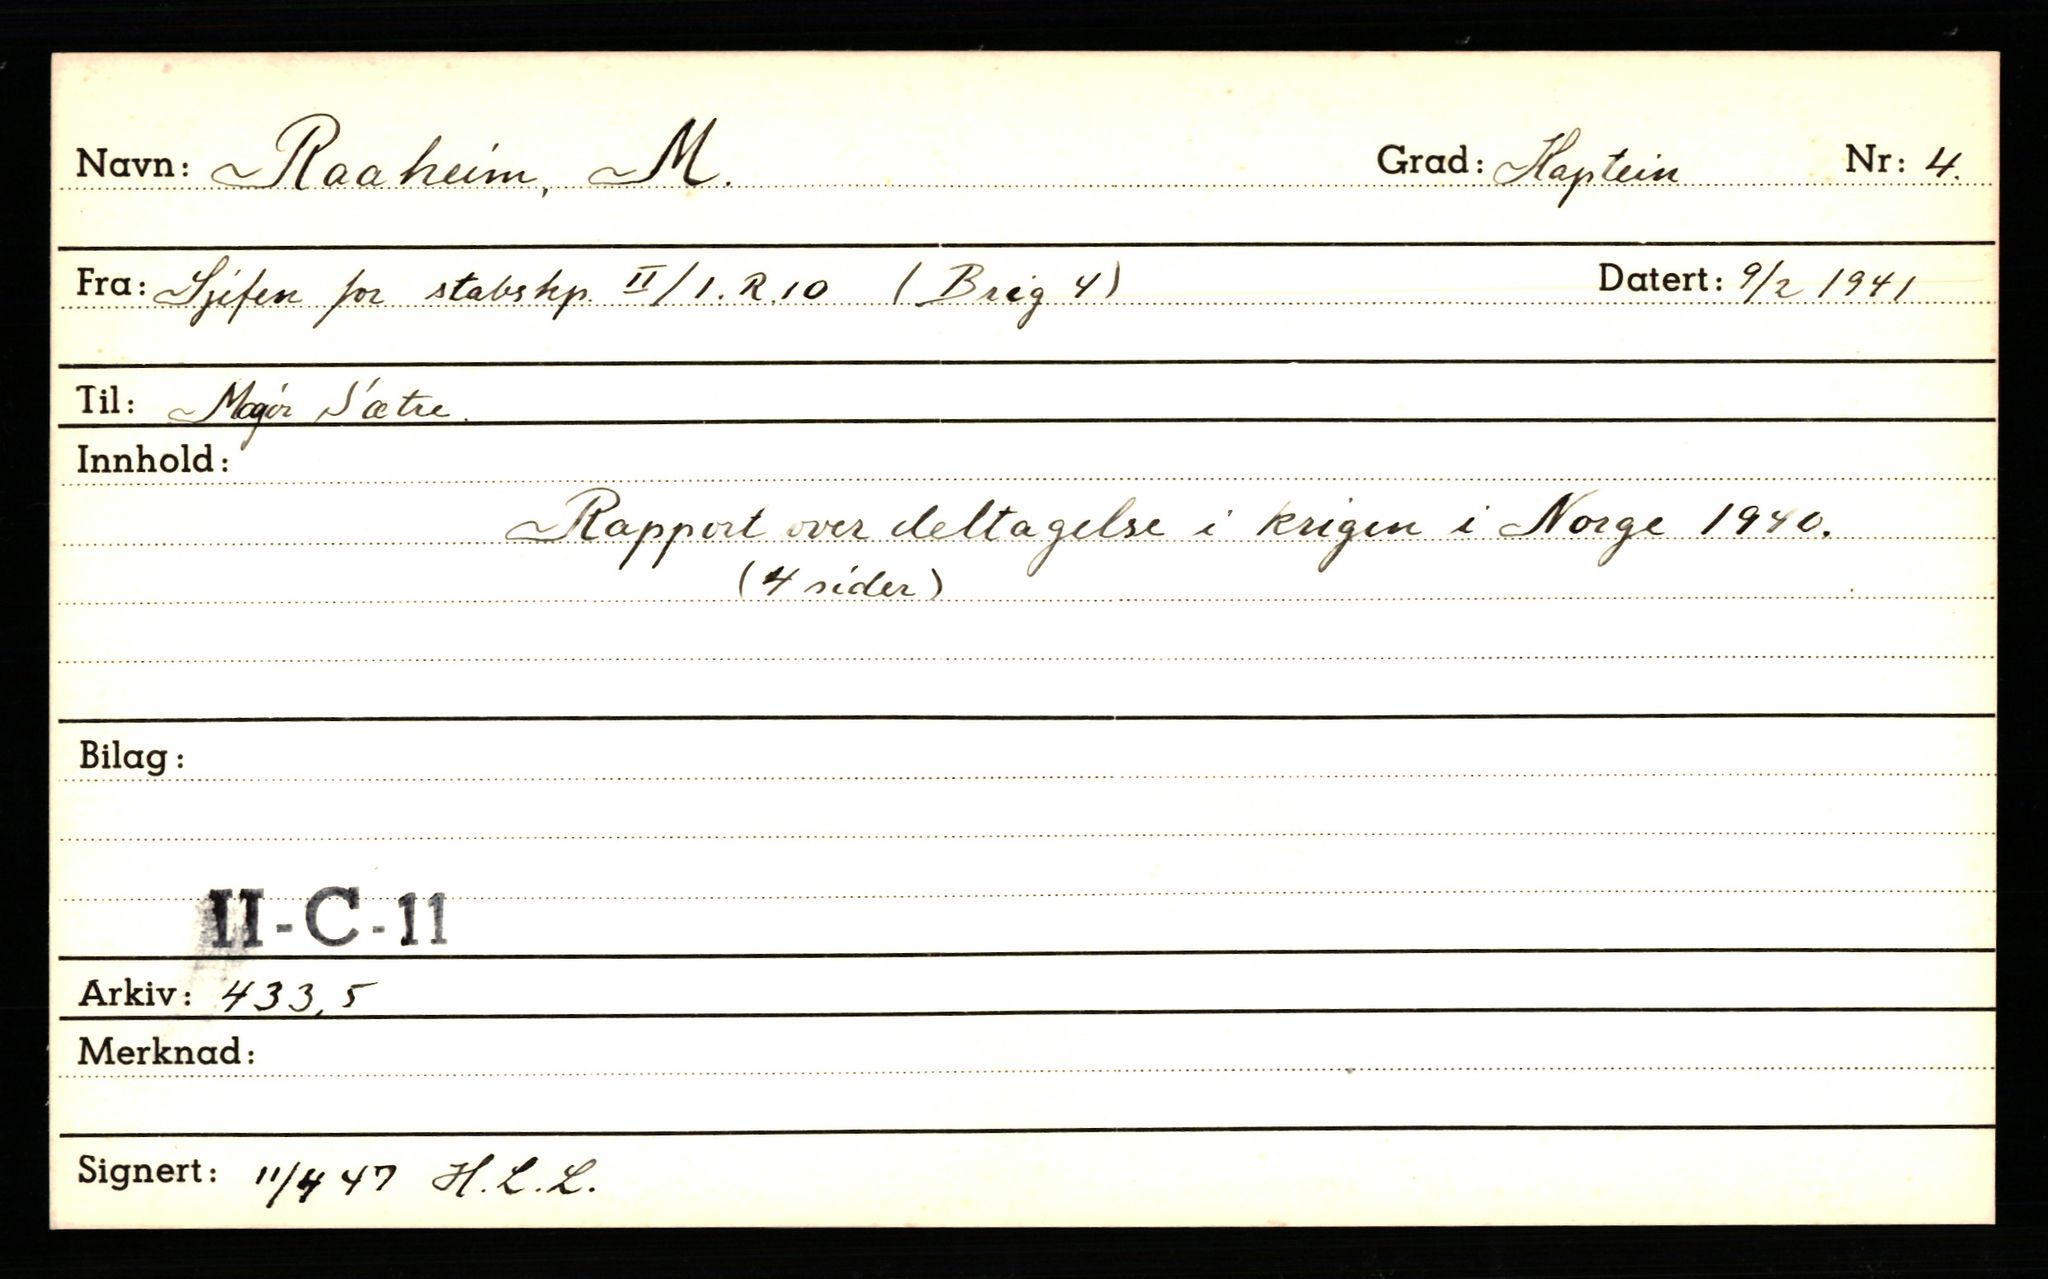 Navn: Raaheim, M. Grad: Kaptein Nr: 4.
Fra: Sjefen for stabskp. II/I.R.10 (Brig 4) Datert: 9/2 1941
Til: Major Sætre.
Innhold:
Rapport over deltagelse i krigen i Norge 1940.
(4 sider)
Bilag:
II-C-11
Arkiv: 433,5
Merknad:
Signert: 11/4 47 H.L.L.